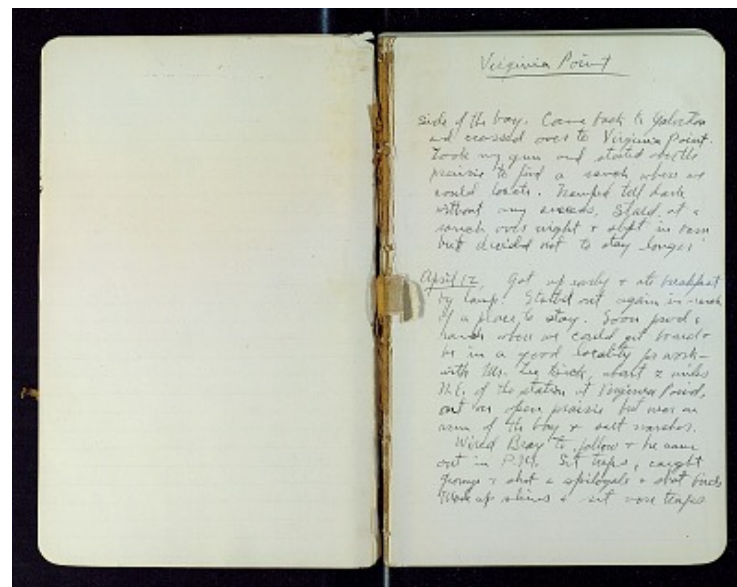 Virginia Point
side of the bay. Came back to Galveston
and crossed over to Virginia Point.
Took my gun and started over the
prairie to find a ranch where we
could locate. Tramped till dark
without any success. Staid at a
ranch over night & slept in barn
but decided not to stay longer.
April 12. Got up early & ate breakfast
by lamp. Started out again in search
of a place to stay. Soon found a
ranch where we could get board &
be in a good locality for work—
with Mr. about 2 miles
N.E. of the station at Virginia Point,
out on open prairie but near an
arm of the bay & salt marshes.
Wired Bray to follow & he came
out in P.M. Set traps, caught
& shot a spilogale & shot birds
Made up skins & set more traps